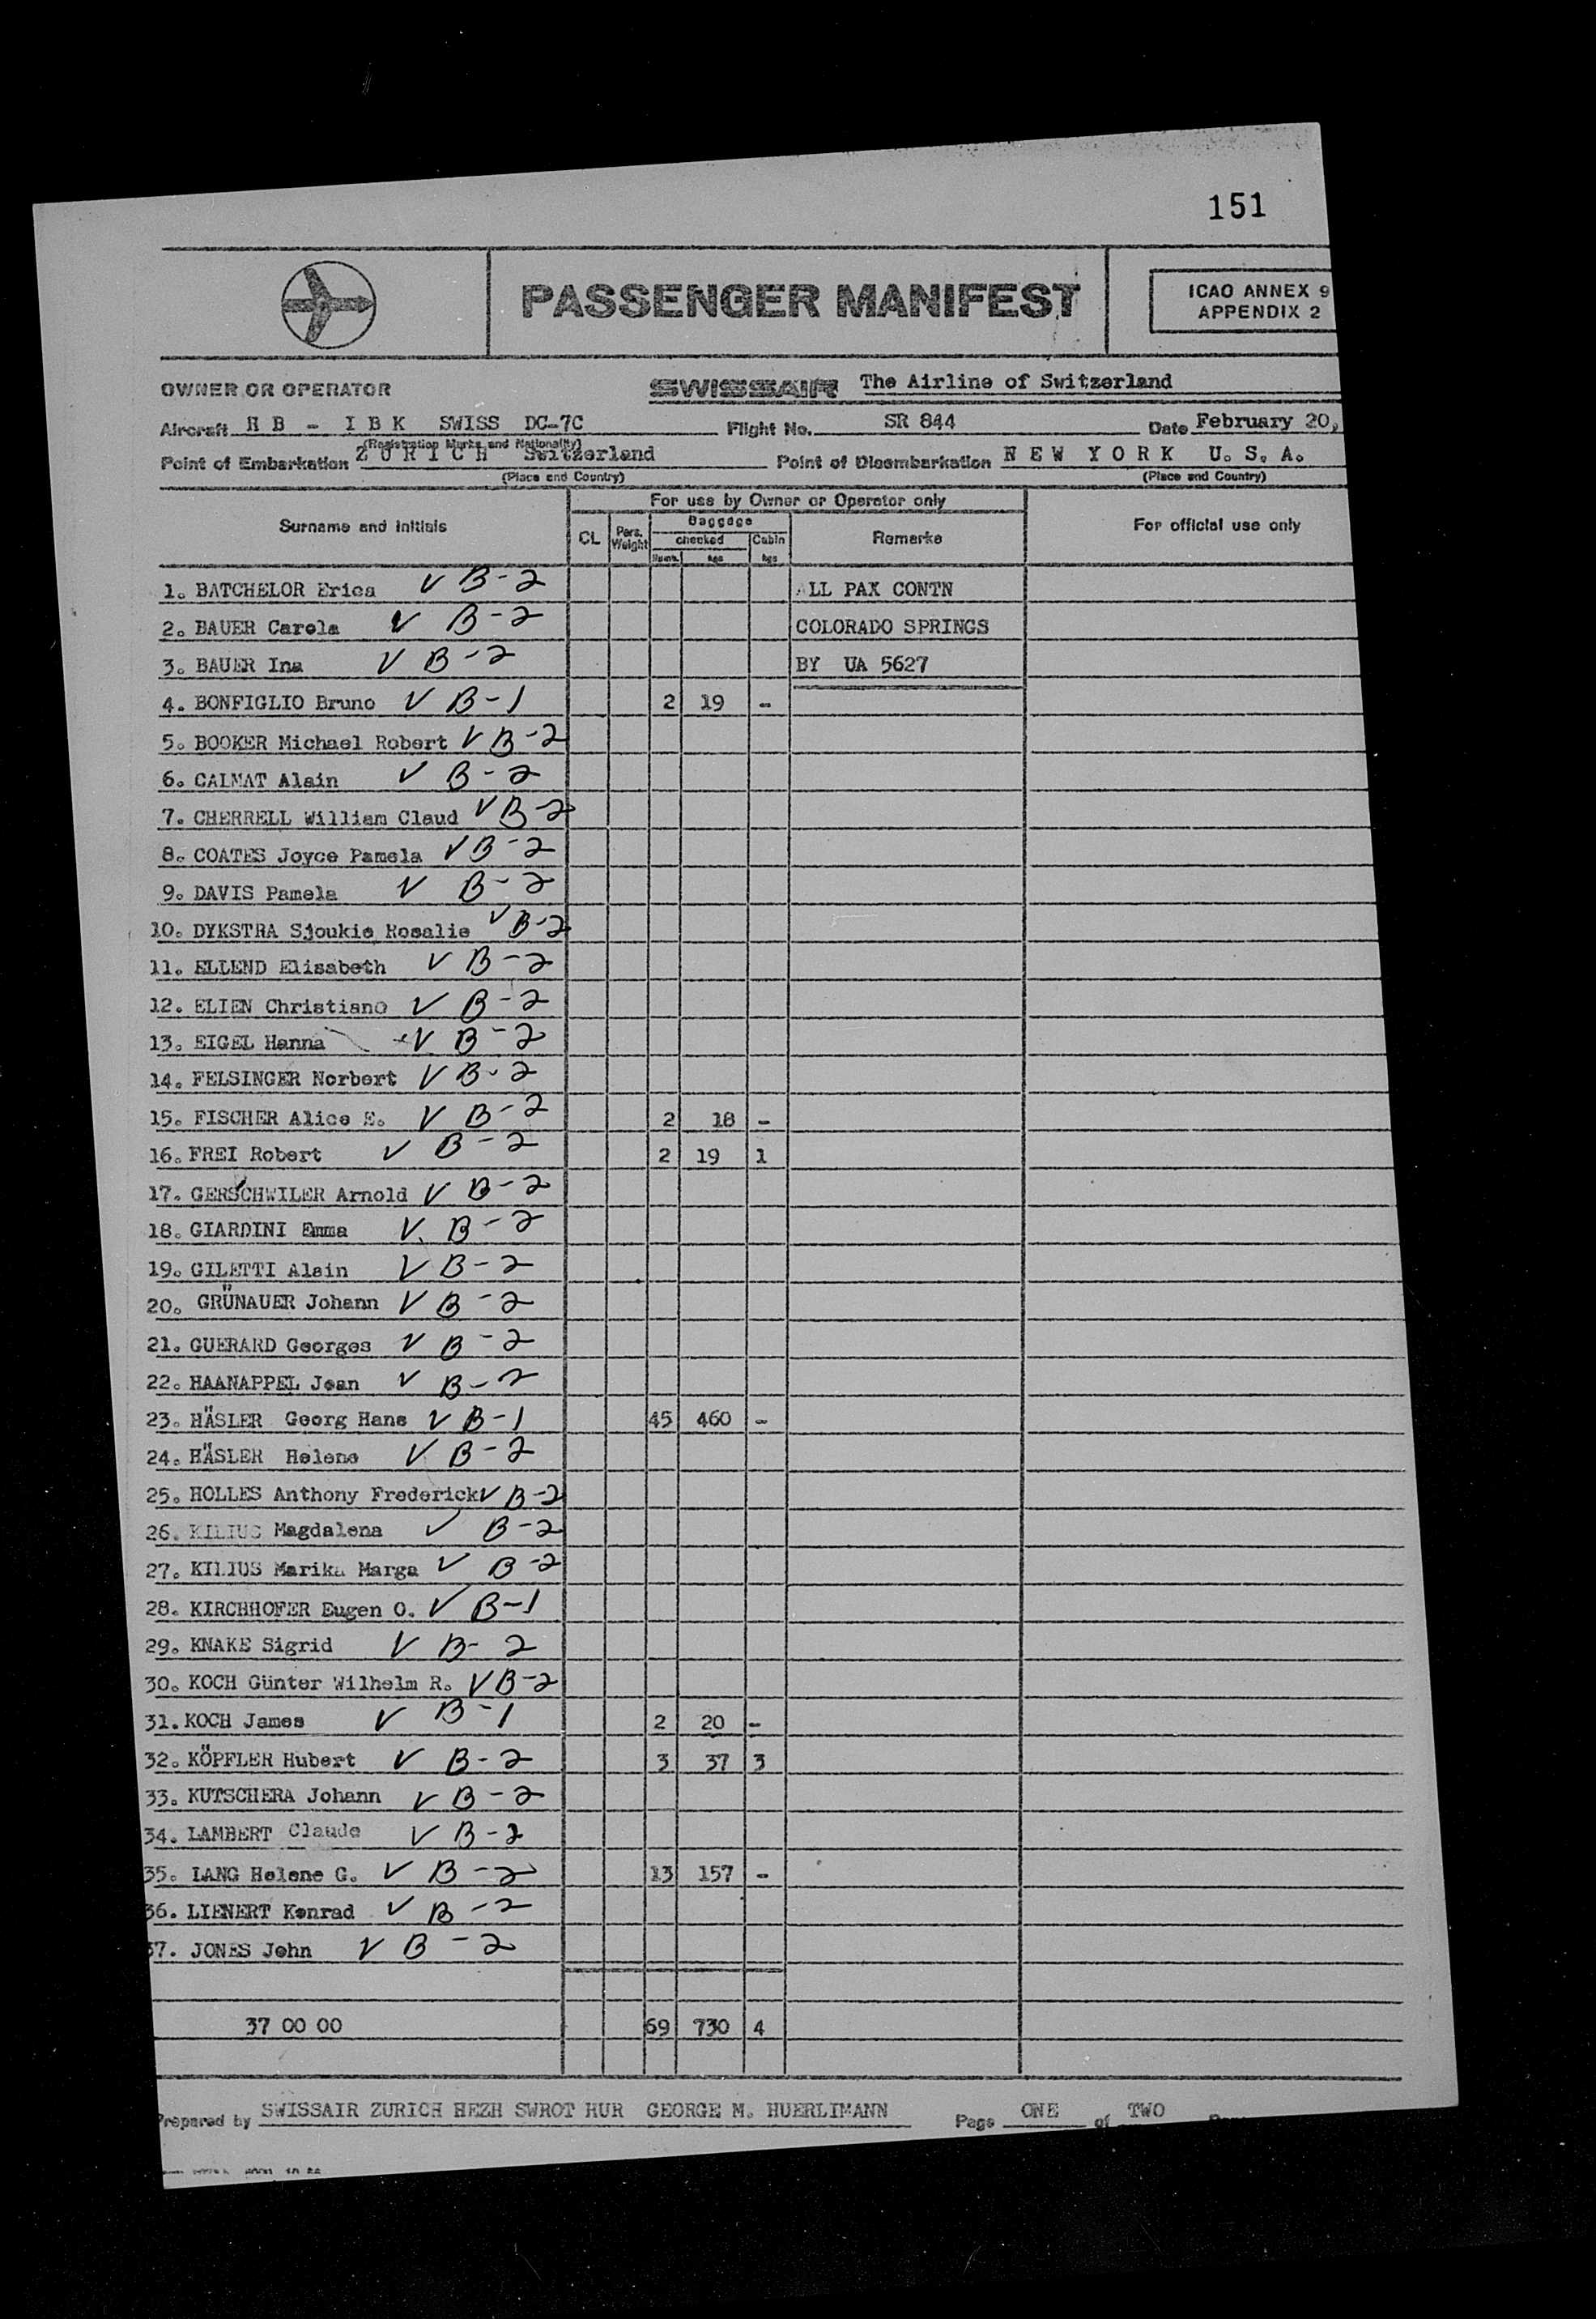 151
PASSENGER MANIFEST
ICAO ANNEX 9
APPENDIX 2
OWNER OR OPERATOR SWISSAIR The Airline of Switzerland
Aircraft H B - I B K SWISS DC-7C Flight No. SR 844 Date February 20,
(Registration Marks and Nationality)
Point of Embarkation Z U R I C H Switzerland Point of Disembarkation N E W Y O R K U. S. A.
(Place and Country) (Place and Country)
For use by Owner or Operator only
Surname and initials CL Pers. Weight Baggage checked Numb. kgs Cabin kgs Remarks For official use only
1. BATCHELOR Erica V B-2 ALL PAX CONTN
2. BAUER Carola V B-2 COLORADO SPRINGS
3. BAUER Ina V B-2 BY UA 5627
4. BONFIGLIO Bruno V B-1 2 19 -
5. BOOKER Michael Robert V B-2
6. CALMAT Alain V B-2
7. CHERRELL William Claud V B-2
8. COATES Joyce Pamela V B-2
9. DAVIS Pamela V B-2
10. DYKSTRA Sjoukie Rosalie V B-2
11. ELLEND Elisabeth V B-2
12. ELIEN Christiano V B-2
13. EIGEL Hanna V B-2
14. FELSINGER Norbert V B-2
15. FISCHER Alice E. V B-2 2 18 -
16. FREI Robert V B-2 2 19 1
17. GERSCHWILER Arnold V B-2
18. GIARDINI Emma V B-2
19. GILETTI Alain V B-2
20. GRÜNAUER Johann V B-2
21. GUERARD Georges V B-2
22. HAANAPPEL Jean V B-2
23. HÄSLER Georg Hans V B-1 45 460 -
24. HÄSLER Helene V B-2
25. HOLLES Anthony Frederick V B-2
26. KILIUS Magdalena V B-2
27. KILIUS Marika Marga V B-2
28. KIRCHHOFER Eugen O. V B-1
29. KNAKE Sigrid V B-2
30. KOCH Günter Wilhelm R. V B-2
31. KOCH James V B-1 2 20 -
32. KÖPFLER Hubert V B-2 3 37 3
33. KUTSCHERA Johann V B-2
34. LAMBERT Claude V B-2
35. LANG Helene G. V B-2 13 157 -
36. LIENERT Konrad V B-2
37. JONES John V B-2
37 00 00 69 730 4
Prepared by SWISSAIR ZURICH HEZH SWROT HUR GEORGE M. HUERLIMANN Page ONE of TWO